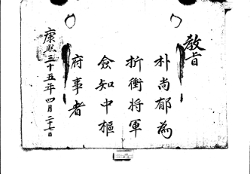 敎旨
朴尚郁為
折衝將軍
僉知中樞
府事者
康熙三十五年四月二十七日